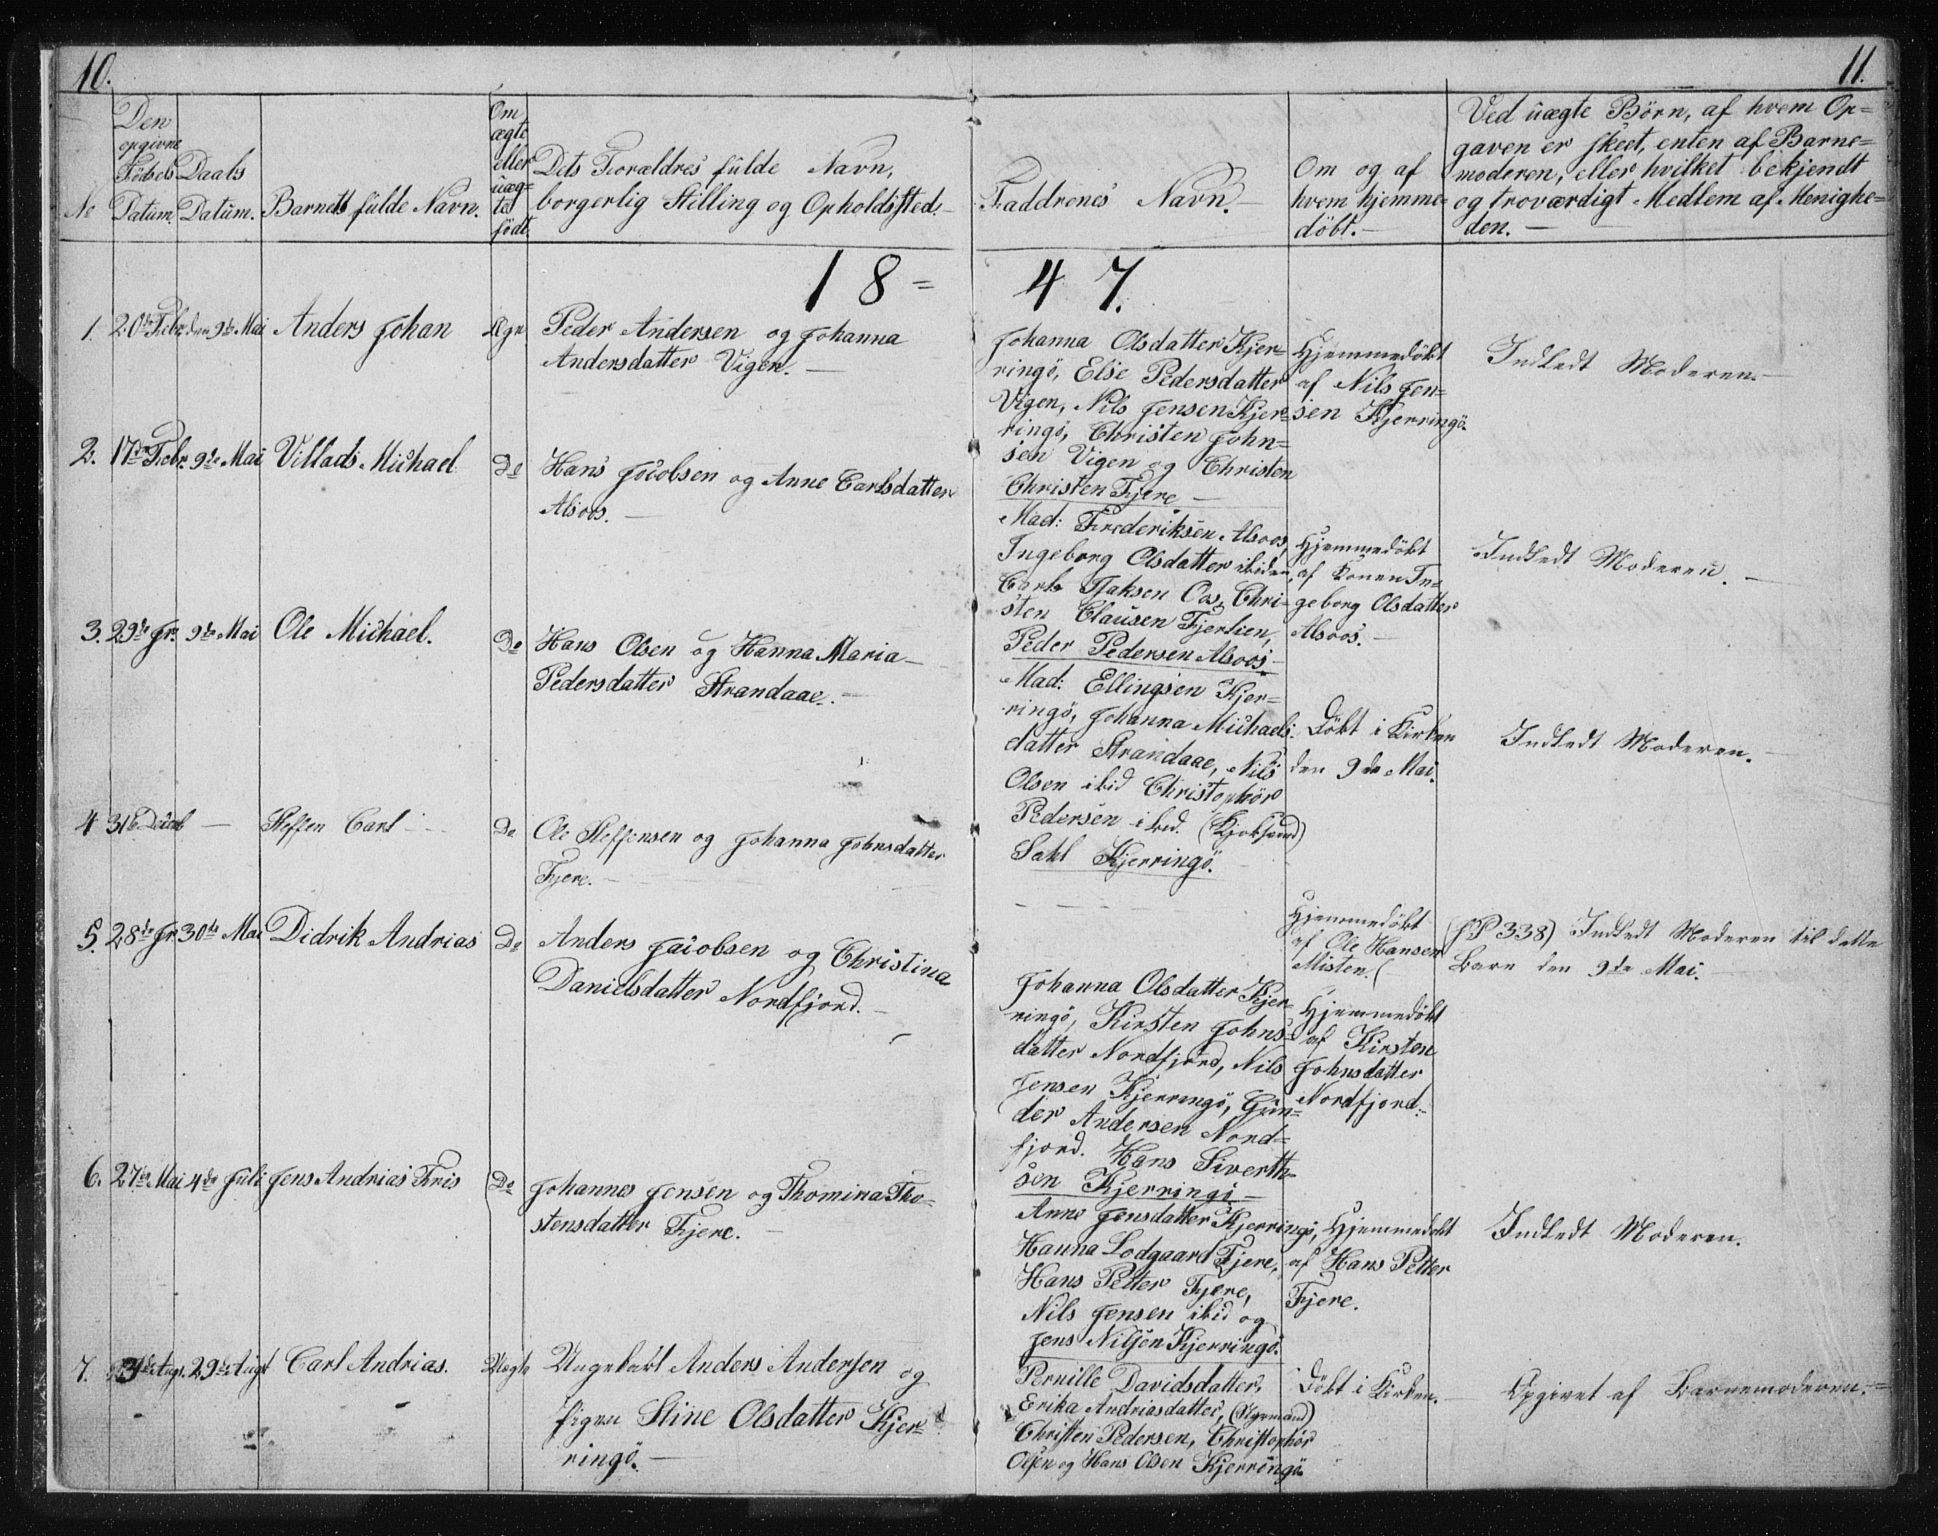 10.
11.
No
Den opgivne Fødsels Datum.
Daabs Datum.
Barnets fulde Navn.
Om ægte eller uægte født.
Dets Forældres fulde Navn,
borgerlig Stilling og Opholdssted.
Faddrenes Navn.
Om og af
hvem hjemme-
döbt.
Ved uægte Börn, af hvem Op-
gaven er skeet, enten af Barne-
moderen, eller hvilket bekjendt
og troværdigt Medlem af Menighe-
den.
18=47.
1. 20de Febr. den 9de Mai Anders Johan Ægte
Peder Andersen og Johanna
Andersdatter Vigen.
Johanna Olsdatter Kjer-
ringö, Else Pedersdatter
Vigen, Nils Jensen Kjer-
ringö, Christen John-
sen Vigen og Christen
Christen Fjere
Hjemmedöbt
af Nils Jen-
sen Kjerringö.
Indledt Moderen.
2. 17de Febr. 9de Mai Villads Michael Do
Hans Jacobsen og Anne Carlsdatter
Alsoos.
Mad: Frederiksen Alsoos,
Ingeborg Olsdatter ibidem,
Carl Isaksen Oos, Chri-
sten Clausen Fjerlien,
Peder Pedersen Alsoos
Hjemmedöbt
af Konen In-
geborg Olsdatter
Alsoos.
Indledt Moderen.
3. 29de Jr. 9de Mai Ole Michael. Do
Hans Olsen og Hanna Maria
Pedersdatter Strandaae.
Mad: Ellingsen Kjer-
ringö, Johanna Michaels-
datter Strandaae, Nils
Olsen ibid Christophör
Pedersen ibid. (Kjoksund)
Sahl Kjerringö.
Döbt i Kirken
den 9de Mai.
Indledt Moderen.
4 31te Decbr Steffen Carl Do
Ole Steffensen og Johanna Johnsdatter
Fjere.
Hjemmedöbt
af Ole Hansen
Misten.
(P 338) Indledt Moderen til dette
Barn den 9de Mai.
5. 28de Jr 30te Mai Didrik Andrias Do
Anders Jacobsen og Christina
Danielsdatter Nordfjord.
Johanna Olsdatter Kjer-
ringö, Kirsten Johns-
datter Nordfjord, Nils
Jensen Kjerringö, Gun-
der Andersen Nord-
fjord. Hans Siverth-
sen Kjerringö
Hjemmedöbt
af Kirsten
Johnsdatter
Nordfjord.
6. 27de Mai 4de Juli Jens Andrias Friis Do
Johannes Jensen og Thomina Tho-
stensdatter Fjere.
Anne Jensdatter Kjerringö,
Hanna Lodgaard Fjere,
Hans Petter Fjere,
Nils Jensen ibid og
Jens Nilsen Kjerringö.
Hjemmedöbt
af Hans Petter
Fjere.
Indledt Moderen.
7. 3de Aug. 29de Augt Carl Andrias. Uægte
Ungekarl Anders Andersen og
Pigen Stine Olsdatter Kjer-
ringö.
Pernille Davidsdatter,
Erika Andriasdatter, (Styrmand)
Christen Pedersen, Christophör
Olsen og Hans Olsen Kjerringö.
Döbt i Kirken.
Opgivet af Barnemoderen.